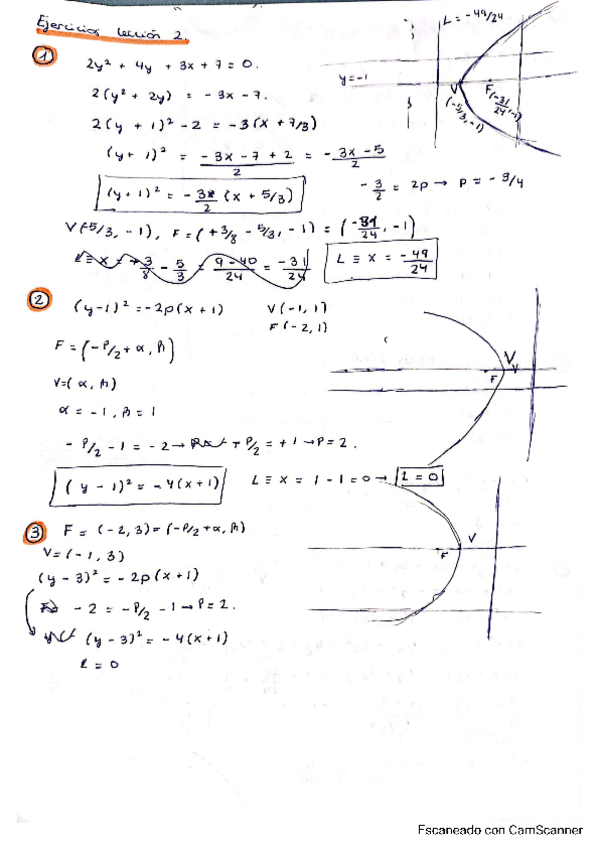 Ejercicios lección 2.
1
2y² + 4y + 3x + 7 = 0.
2(y² + 2y) = -3x - 7.
2(y + 1)² - 2 = -3(x + 7/3)
(y + 1)² = (-3x - 7 + 2)/2 = (-3x - 5)/2
(y + 1)² = -3/2 (x + 5/3)
-3/2 = 2p → p = -3/4
V(-5/3, -1), F = (+3/8 - 5/3, -1) = (-31/24, -1)
L ≡ x = +3/8 - 5/3 = (9 - 40)/24 = -31/24
L ≡ x = -49/24
L = -49/24
y = -1
V
(-5/3, -1)
F
(-31/24, -1)
2
(y-1)² = -2p(x+1)
V(-1, 1)
F(-2, 1)
F = (-P/2 + α, β)
V = (α, β)
α = -1, β = 1
-P/2 - 1 = -2 → -P/2 = +1 → P = 2.
(y - 1)² = -4(x+1)
L ≡ x = 1 - 1 = 0 → L = 0
F
V
V
3
F = (-2, 3) = (-P/2 + α, β)
V = (-1, 3)
(y - 3)² = -2p(x+1)
-2 = -P/2 - 1 → P = 2.
(y - 3)² = -4(x+1)
L = 0
F
V
Escaneado con CamScanner